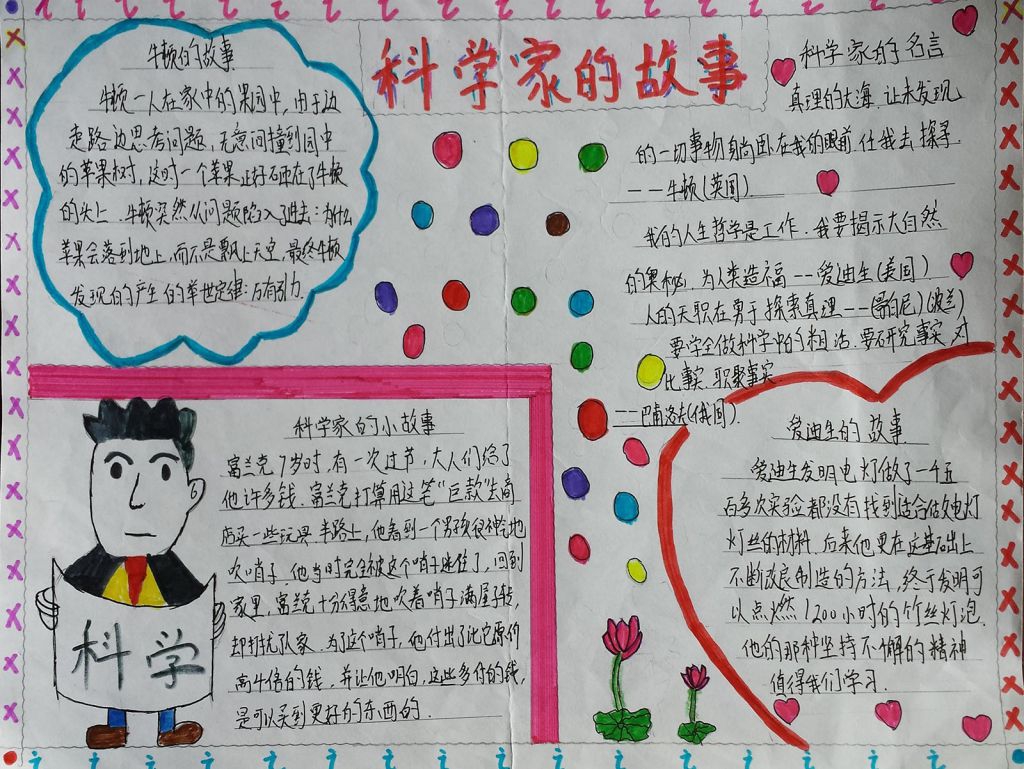 科学家的故事
牛顿的故事
牛顿一人在家中的果园中,由于边
走路边思考问题,无意间撞到园中
的苹果树,这时一个苹果正好砸在了牛顿
的头上,牛顿突然从问题陷入了进去:为什么
苹果会落到地上,而不是飘上天空,最终牛顿
发现的产生的举世定律:万有引力.
科学家的名言
真理的大海,让未发现
的一切事物身尚卧在我的眼前,任我去探寻
——牛顿(英国)
我的人生哲学是工作,我要揭示大自然
的奥秘,为人类造福——爱迪生(美国)
人的天职在勇于探索真理——(哥白尼)(波兰)
要学全做科学中的粗活.要研究事实,对
比事实,积聚事实
——巴甫洛夫(俄国).
科学家的小故事
富兰克7岁时,有一次过节,大人们给了
他许多钱.富兰克打算用这笔“巨款”去商
店买一些玩具.半路上,他看到一个男孩很神气地
吹哨子,他当时完全被这个哨子迷住了,回到
家里,富兰克十分得意地吹着哨子满屋子转,
却打扰了家.为了这个哨子,他付出了比它原价
高牛倍的钱,并让他明白,这些多付的钱,
是可以买到更好的东西的.
科学
爱迪生的故事
爱迪生发明电灯做了一千五
百多次实验都没有找到适合做电灯
灯丝的材料,后来他更在这基础上
不断改良制造的方法,终于发明可
以点燃1200小时的竹丝灯泡.
他的那种坚持不懈的精神
值得我们学习.